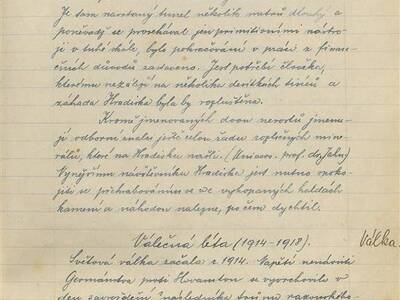 Je tam navrtaný tunel několik metrů dlouhý a
poněvadž se provrtával jen primitivními nástro-
ji v tuhé skále, bylo pokračování v práci z finan-
čních důvodů zastaveno. Jest potřebí člověka,
kterému nezáleží na několika desítkách tisíců a
záhada Hradiska byla by rozluštěna.
Kromě jmenovaných dvou nerostů jmenu-
jí odborní znalci ještě celou řadu vzácných mine-
rálů, které na Hradisku našli. (Univers. prof. dr. Jahn).
Nynějšímu návštěvníku Hradiska jest nutno spoko-
jiti se přehrabováním se ve vykopaných haldách
kamení a náhodou nalezne, po čem dychtil.
Válečná léta (1914-1918).
Válka.
Světová válka začala r. 1914. Napětí nenávisti
Germánstva proti Slovanstvu se vyvrcholilo v
den zavraždění následníka trůnu rakouského